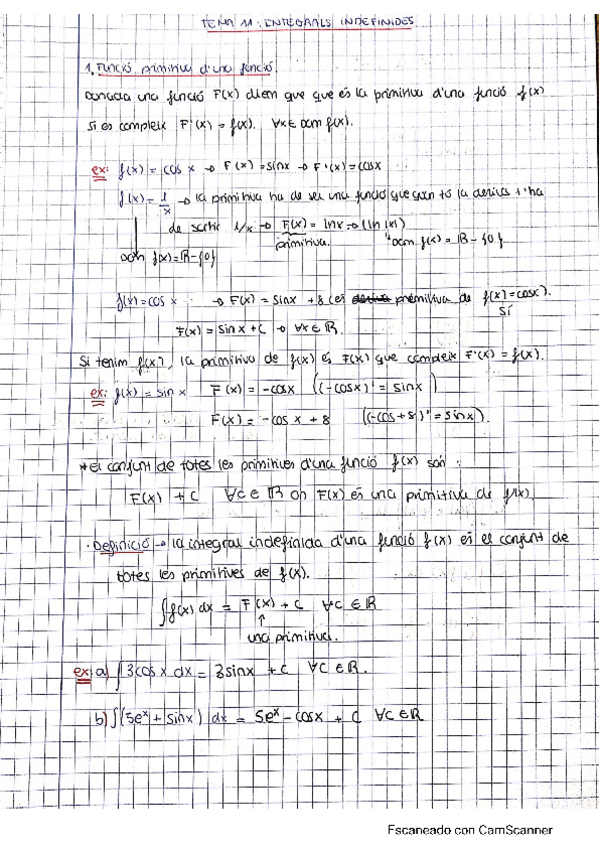 TEMA 11: INTEGRALS INDEFINIDES
1. Funció primitiva d'una funció
Donada una funció F(x) diem que que és la primitiva d'una funció f(x)
si es compleix F'(x) = f(x). ∀x ∈ Dom f(x).
ex: f(x) = cos x → F(x) = sinx → F'(x) = cosx
f(x) = 1/x → la primitiva ha de ser una funció que quan fo la deriva t'ha
de sortir 1/x → F(x) = lnx → (ln|x|)
primitiva. Dom f(x) = R - {0}
Dom f(x) = R - {0}
f(x) = cos x → F(x) = sinx + 8 (és primitiva de f(x) = cosx).
Sí
F(x) = sin x + C → ∀x ∈ R.
Si tenim f(x), la primitiva de f(x) és F(x) que compleix F'(x) = f(x).
ex: f(x) = sin x F(x) = -cosx ((-cosx)' = sinx)
F(x) = -cos x + 8 ((-cos+8)' = sinx).
* El conjunt de totes les primitives d'una funció f(x) són:
F(x) + C ∀C ∈ R on F(x) és una primitiva de f(x)
· Definició → la integral indefinida d'una funció f(x) és el conjunt de
totes les primitives de f(x).
∫f(x) dx = F(x) + C ∀C ∈ R
↑
una primitiva.
ex: a) ∫3cos x dx = 3sinx + C ∀C ∈ R.
b) ∫(5eˣ + sinx) dx = 5eˣ - cosx + C ∀C ∈ R
Escaneado con CamScanner